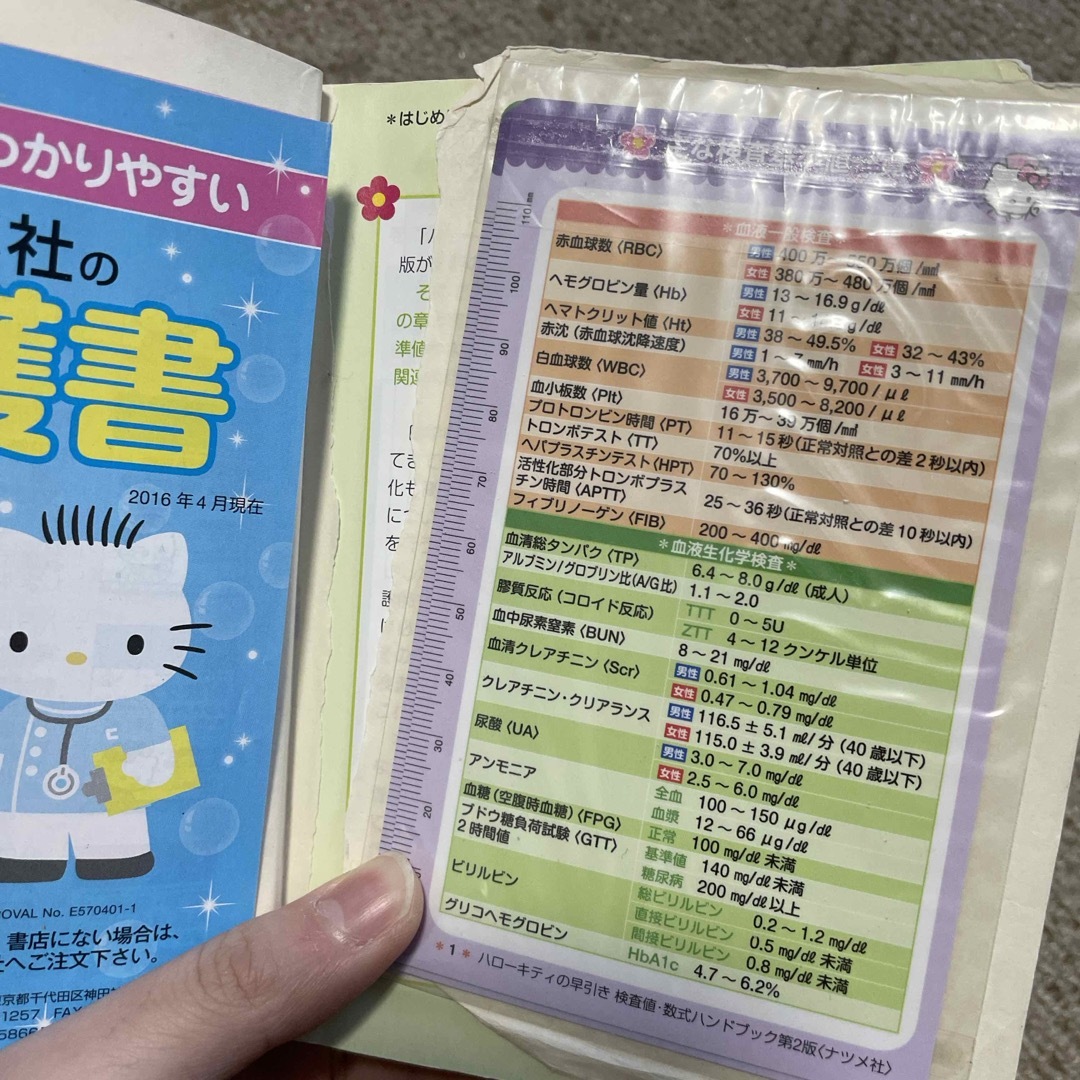 わかりやすい
社の
護書
2016年4月現在
OVAL No. E570401-1
書店にない場合は、
へご注文下さい。
東京都千代田区神田
1257 FAX
5866
*はじめ
「ハ
版が
そ
の章
準値
関連
てき
化も
に
を
な検査
110 mm
100
90
80
70
60
50
40
30
20
*血液一般検査*
赤血球数〈RBC〉 男性 400万~ 50万個/㎣
女性 380万~480万個/㎣
ヘモグロビン量〈Hb〉 男性 13~16.9g/dℓ
女性 11~ g/dℓ
ヘマトクリット値〈Ht〉 男性 38~49.5% 女性 32~43%
赤沈(赤血球沈降速度) 男性 1~7㎜/h 女性 3~11㎜/h
白血球数〈WBC〉 男性 3,700~9,700/μℓ
女性 3,500~8,200/μℓ
血小板数〈Plt〉 16万~39万個/㎣
プロトロンビン時間〈PT〉 11~15秒(正常対照との差2秒以内)
トロンボテスト〈TT〉 70%以上
ヘパプラスチンテスト〈HPT〉 70~130%
活性化部分トロンボプラス
チン時間〈APTT〉 25~36秒(正常対照との差10秒以内)
フィブリノーゲン〈FIB〉 200~400㎎/dℓ
*血液生化学検査*
血清総タンパク〈TP〉 6.4~8.0g/dℓ(成人)
アルブミン/グロブリン比(A/G比) 1.1~2.0
膠質反応(コロイド反応) TTT 0~5U
ZTT 4~12クンケル単位
血中尿素窒素〈BUN〉 8~21㎎/dℓ
血清クレアチニン〈Scr〉 男性 0.61~1.04㎎/dℓ
女性 0.47~0.79㎎/dℓ
クレアチニン・クリアランス 男性 116.5±5.1㎖/分(40歳以下)
女性 115.0±3.9㎖/分(40歳以下)
尿酸〈UA〉 男性 3.0~7.0㎎/dℓ
女性 2.5~6.0㎎/dℓ
アンモニア 全血 100~150μg/dℓ
血漿 12~66μg/dℓ
血糖(空腹時血糖)〈FPG〉 正常 100㎎/dℓ未満
ブドウ糖負荷試験〈GTT〉 基準値 140㎎/dℓ未満
2時間値 糖尿病 200㎎/dℓ以上
ビリルビン 総ビリルビン 0.2~1.2㎎/dℓ
直接ビリルビン 0.5㎎/dℓ未満
間接ビリルビン 0.8㎎/dℓ未満
グリコヘモグロビン HbA1c 4.7~6.2%
*1* ハローキティの早引き 検査値・数式ハンドブック第2版〈ナツメ社〉